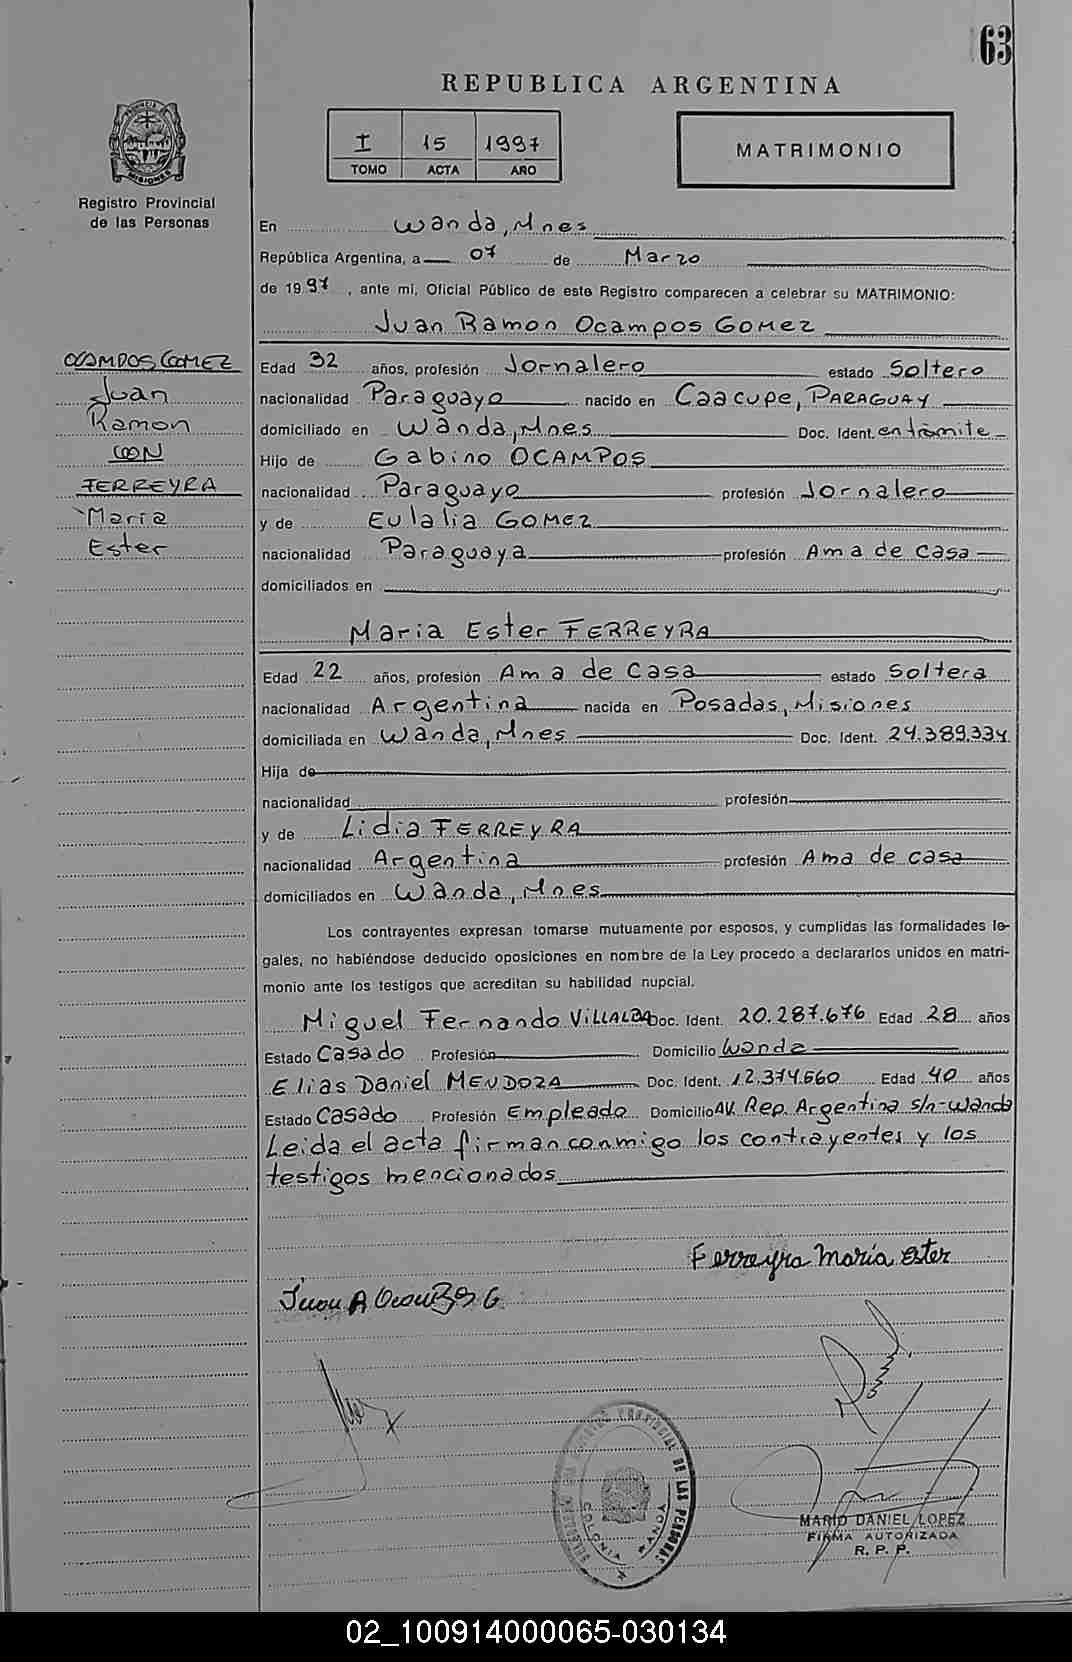 63
REPUBLICA ARGENTINA
I 15 1997
TOMO ACTA AÑO
MATRIMONIO
PROVINCIA DE
MISIONES
Registro Provincial
de las Personas
En Wanda, Mnes
República Argentina, a 07 de Marzo
de 1997, ante mi, Oficial Público de este Registro comparecen a celebrar su MATRIMONIO:
Juan Ramon Ocampos GOMEZ
OCAMPOS GOMEZ
Juan
Ramon
CON
FERREYRA
Maria
Ester
Edad 32 años, profesión Jornalero estado Soltero
nacionalidad Paraguayo nacido en Caacupe, PARAGUAY
domiciliado en Wanda, Mnes Doc. Ident. en tramite
Hijo de Gabino OCAMPOS
nacionalidad Paraguayo profesión Jornalero
y de Eulalia GOMEZ
nacionalidad Paraguaya profesión Ama de Casa
domiciliados en
Maria Ester FERREYRA
Edad 22 años, profesión Ama de Casa estado Soltera
nacionalidad Argentina nacida en Posadas, Misiones
domiciliada en Wanda, Mnes Doc. Ident. 24.389.334
Hija de
nacionalidad profesión
y de Lidia FERREYRA
nacionalidad Argentina profesión Ama de casa
domiciliados en Wanda, Mnes
Los contrayentes expresan tomarse mutuamente por esposos, y cumplidas las formalidades le-
gales, no habiéndose deducido oposiciones en nombre de la Ley procedo a declararlos unidos en matri-
monio ante los testigos que acreditan su habilidad nupcial.
Miguel Fernando VILLALBA Doc. Ident. 20.287.676 Edad 28 años
Estado Casado Profesión Domicilio Wanda
Elias Daniel MENDOZA Doc. Ident. 12.374.660 Edad 40 años
Estado Casado Profesión Empleado Domicilio AV. Rep. Argentina s/n-Wanda
Leida el acta firman conmigo los contrayentes y los
testigos mencionados
Ferreyra María Ester
Juan
MARIO DANIEL LOPEZ
FIRMA AUTORIZADA
R. P. P.
PROVINCIAL DE LAS PERSONAS
COLONIA WANDA
02_100914000065-030134